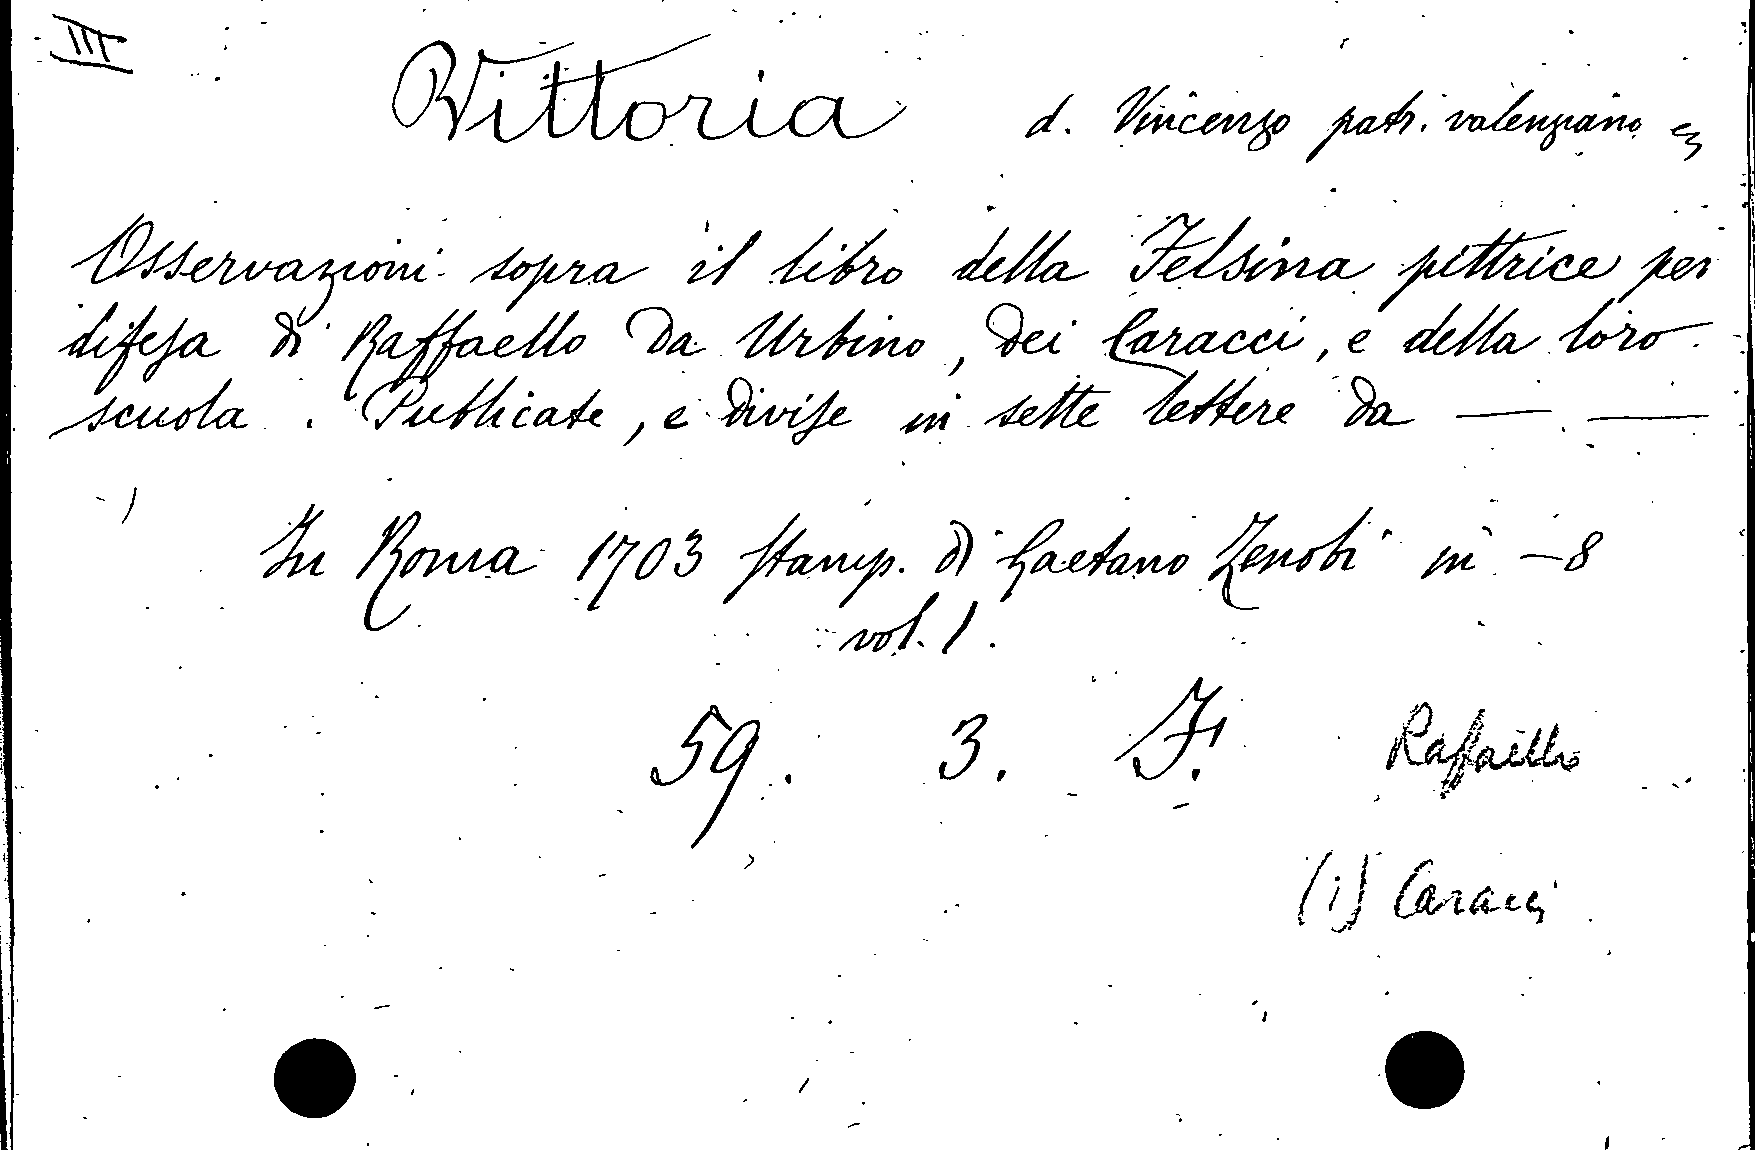 III
Vittoria d. Vincenzo patr. valenziano
Osservazioni sopra il libro della Felsina pittrice per
difesa di Raffaello da Urbino, dei Caracci, e della loro
scuola. Publicate, e divise in sette lettere da — —
In Roma 1703 stamp. di Gaetano Zenobi in -8
vol. 1.
59. 3. F. Raffaello
(i) Caracci